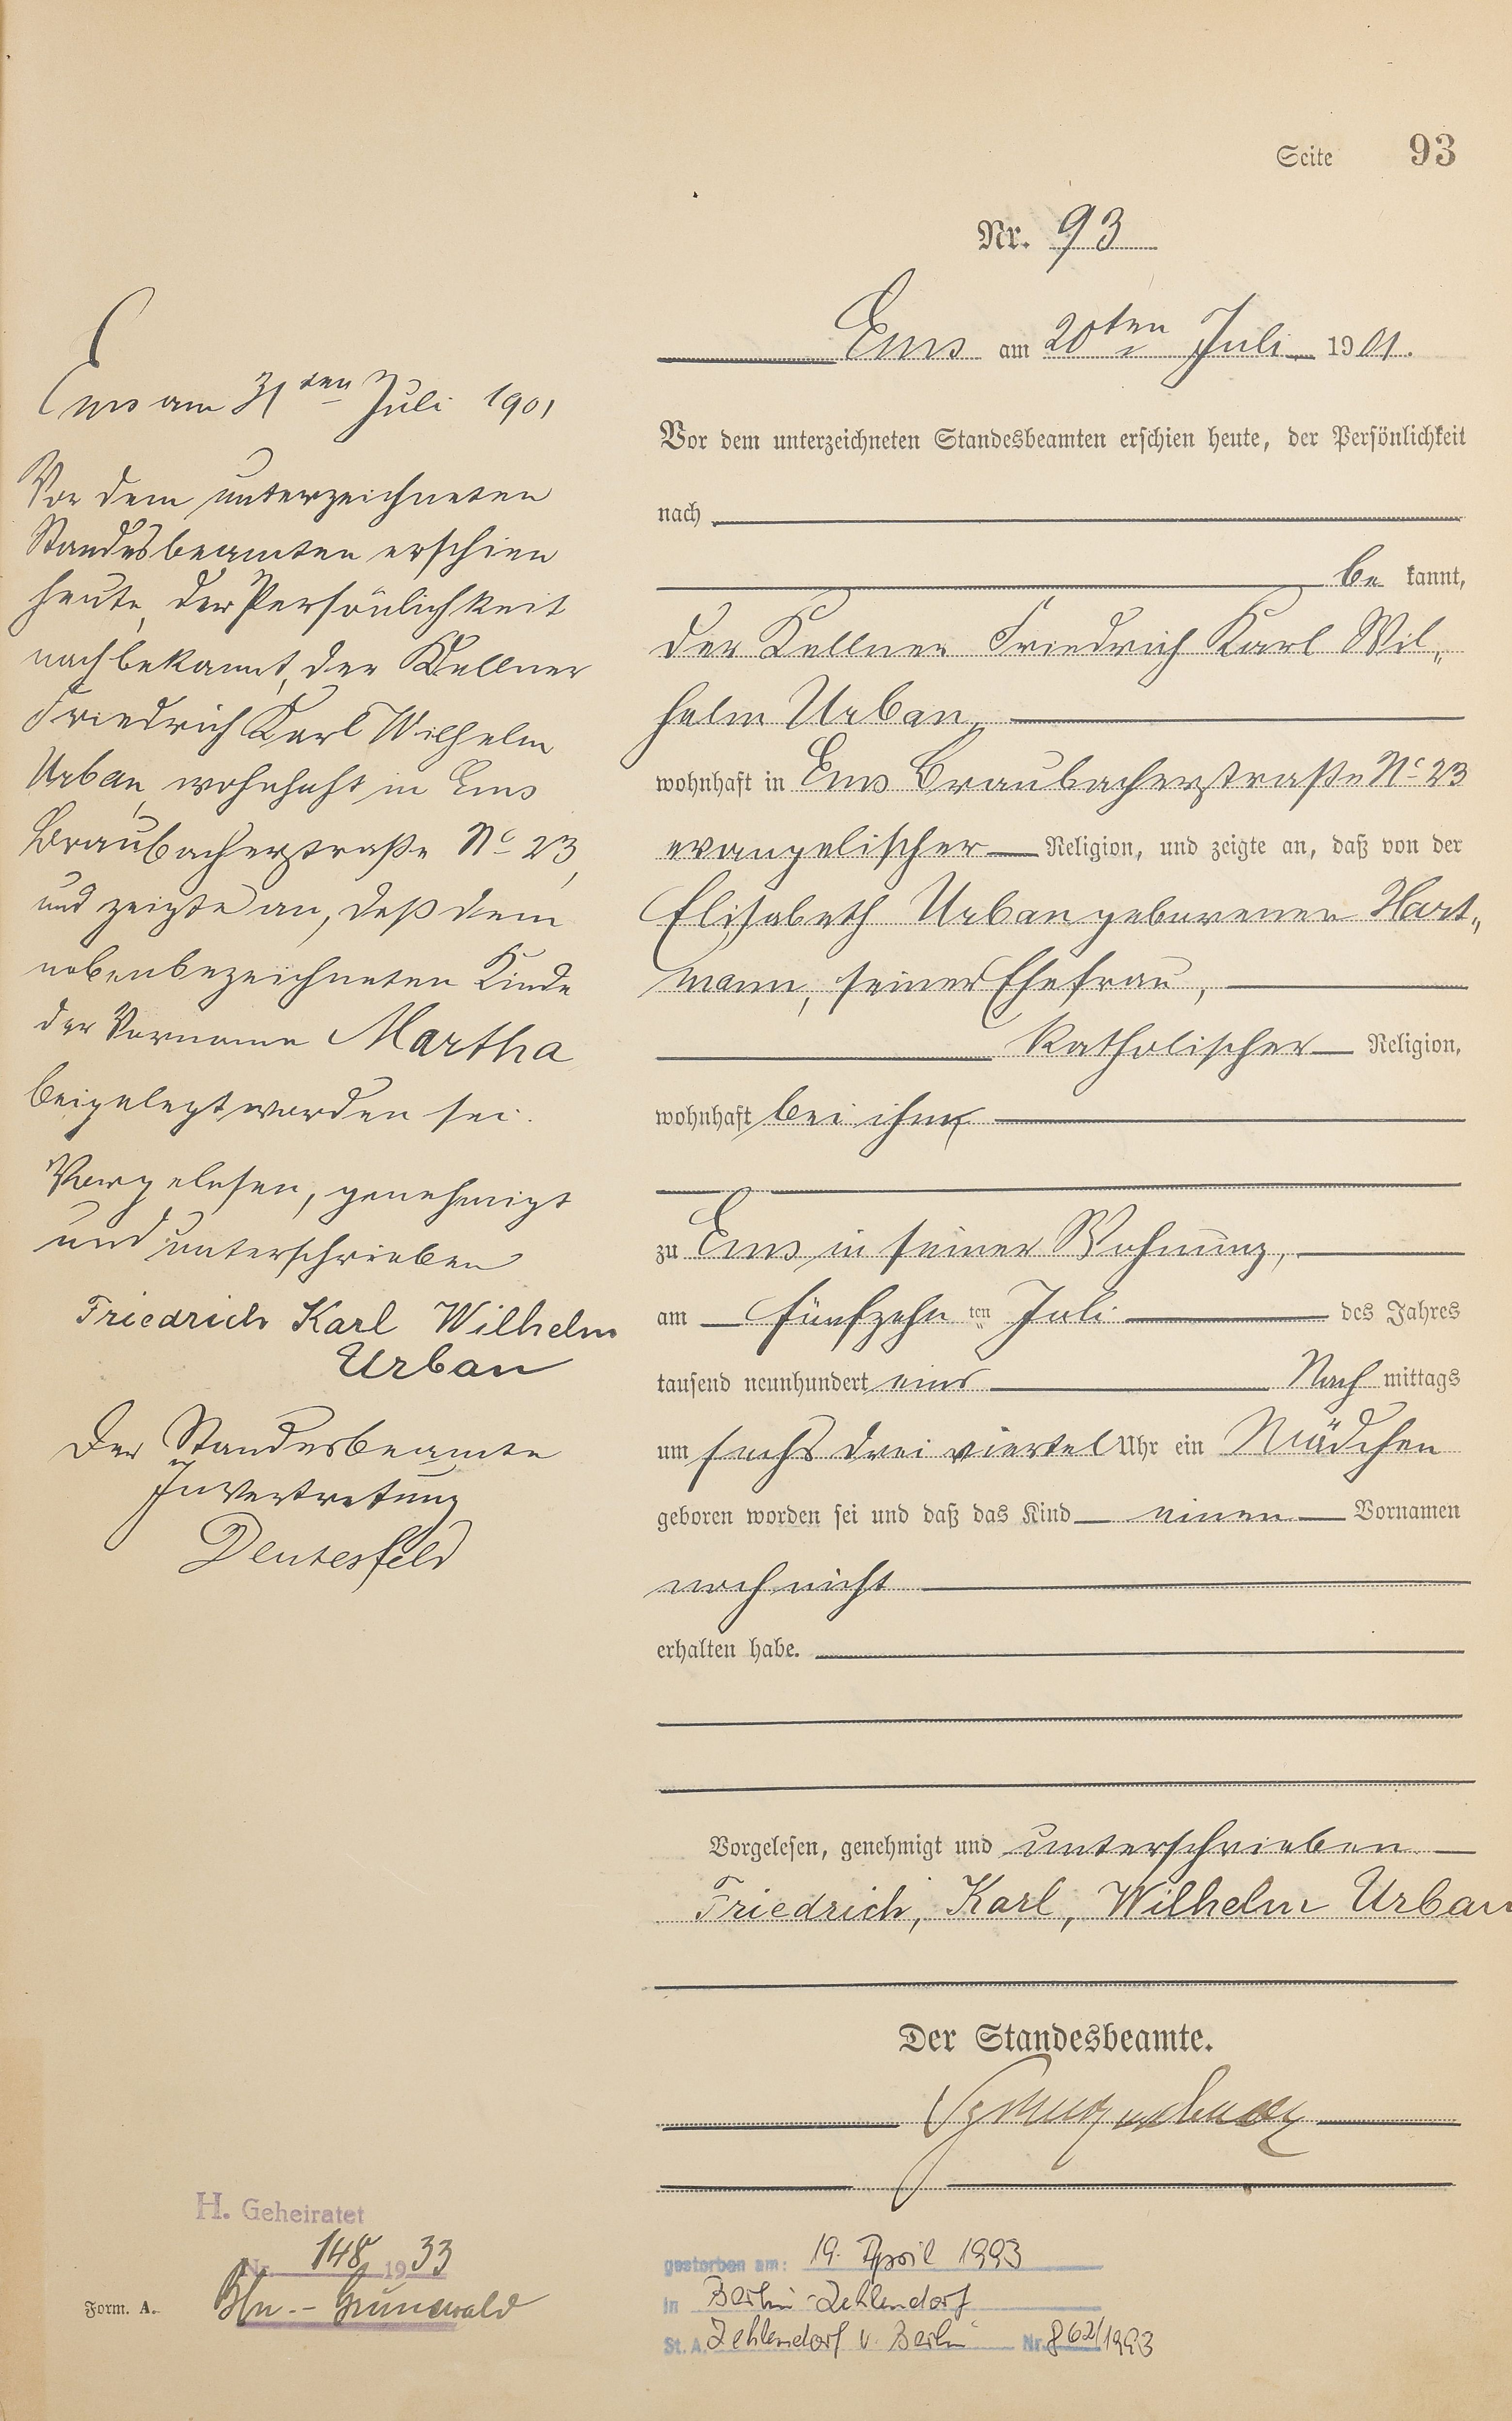 Seite 93
Nr. 93
Ems am 20ten Juli 1901.
Vor dem unterzeichneten Standesbeamten erschien heute, der Persönlichkeit
nach
be kannt,
der Kellner Friedrich Karl Wil„
helm Urban,
wohnhaft in Ems Braubacherstraße No 23
evangelischer Religion, und zeigte an, daß von der
Elisabeth Urban geborenen Hart„
mann, seiner Ehefrau,
katholischer Religion,
wohnhaft bei ihm
zu Ems in seiner Wohnung,
am fünfzehn ten Juli des Jahres
tausend neunhundert eins Nach mittags
um sechs drei viertel Uhr ein Mädchen
geboren worden sei und daß das Kind einen Vornamen
noch nicht
erhalten habe.
Vorgelesen, genehmigt und unterschrieben
Friedrich, Karl, Wilhelm Urban
Der Standesbeamte.
Ems am 31ten Juli 1901
Vor dem unterzeichneten
Standesbeamten erschien
heute, der Persönlichkeit
nach bekannt, der Kellner
Friedrich Karl Wilhelm
Urban, wohnhaft in Ems
Braubacherstraße No 23,
und zeigte an, daß dem
nebenbezeichneten Kinde
der Vorname Martha
beigelegt worden sei.
Vorgelesen, genehmigt
und unterschrieben
Friedrich Karl Wilhelm
Urban
Der Standesbeamte
In Vertretung
H. Geheiratet
Nr. 148 1933
Bln.-Grunewald
Form. A.
gestorben am: 19. April 1993
in Berlin-Zehlendorf
St. A. Zehlendorf v. Berlin Nr. 862/1993